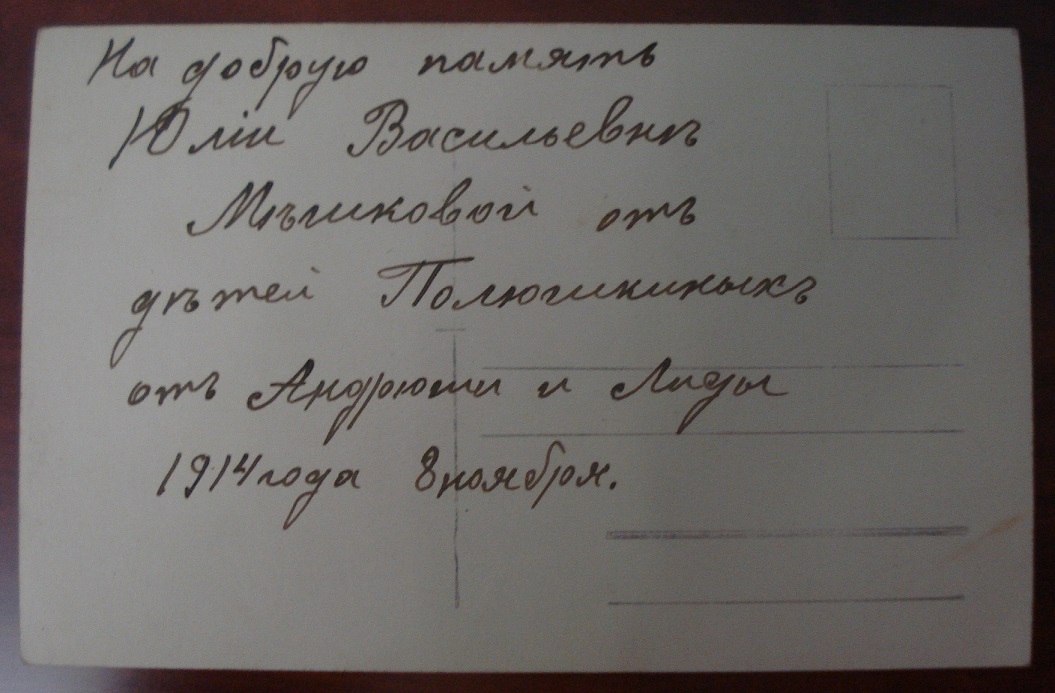 На добрую память
Юліи Васильевнѣ
Мѣшковой отъ
дѣтей Полюшкиныхъ
отъ Андрюши и Лиды
1914 года 8 ноября.